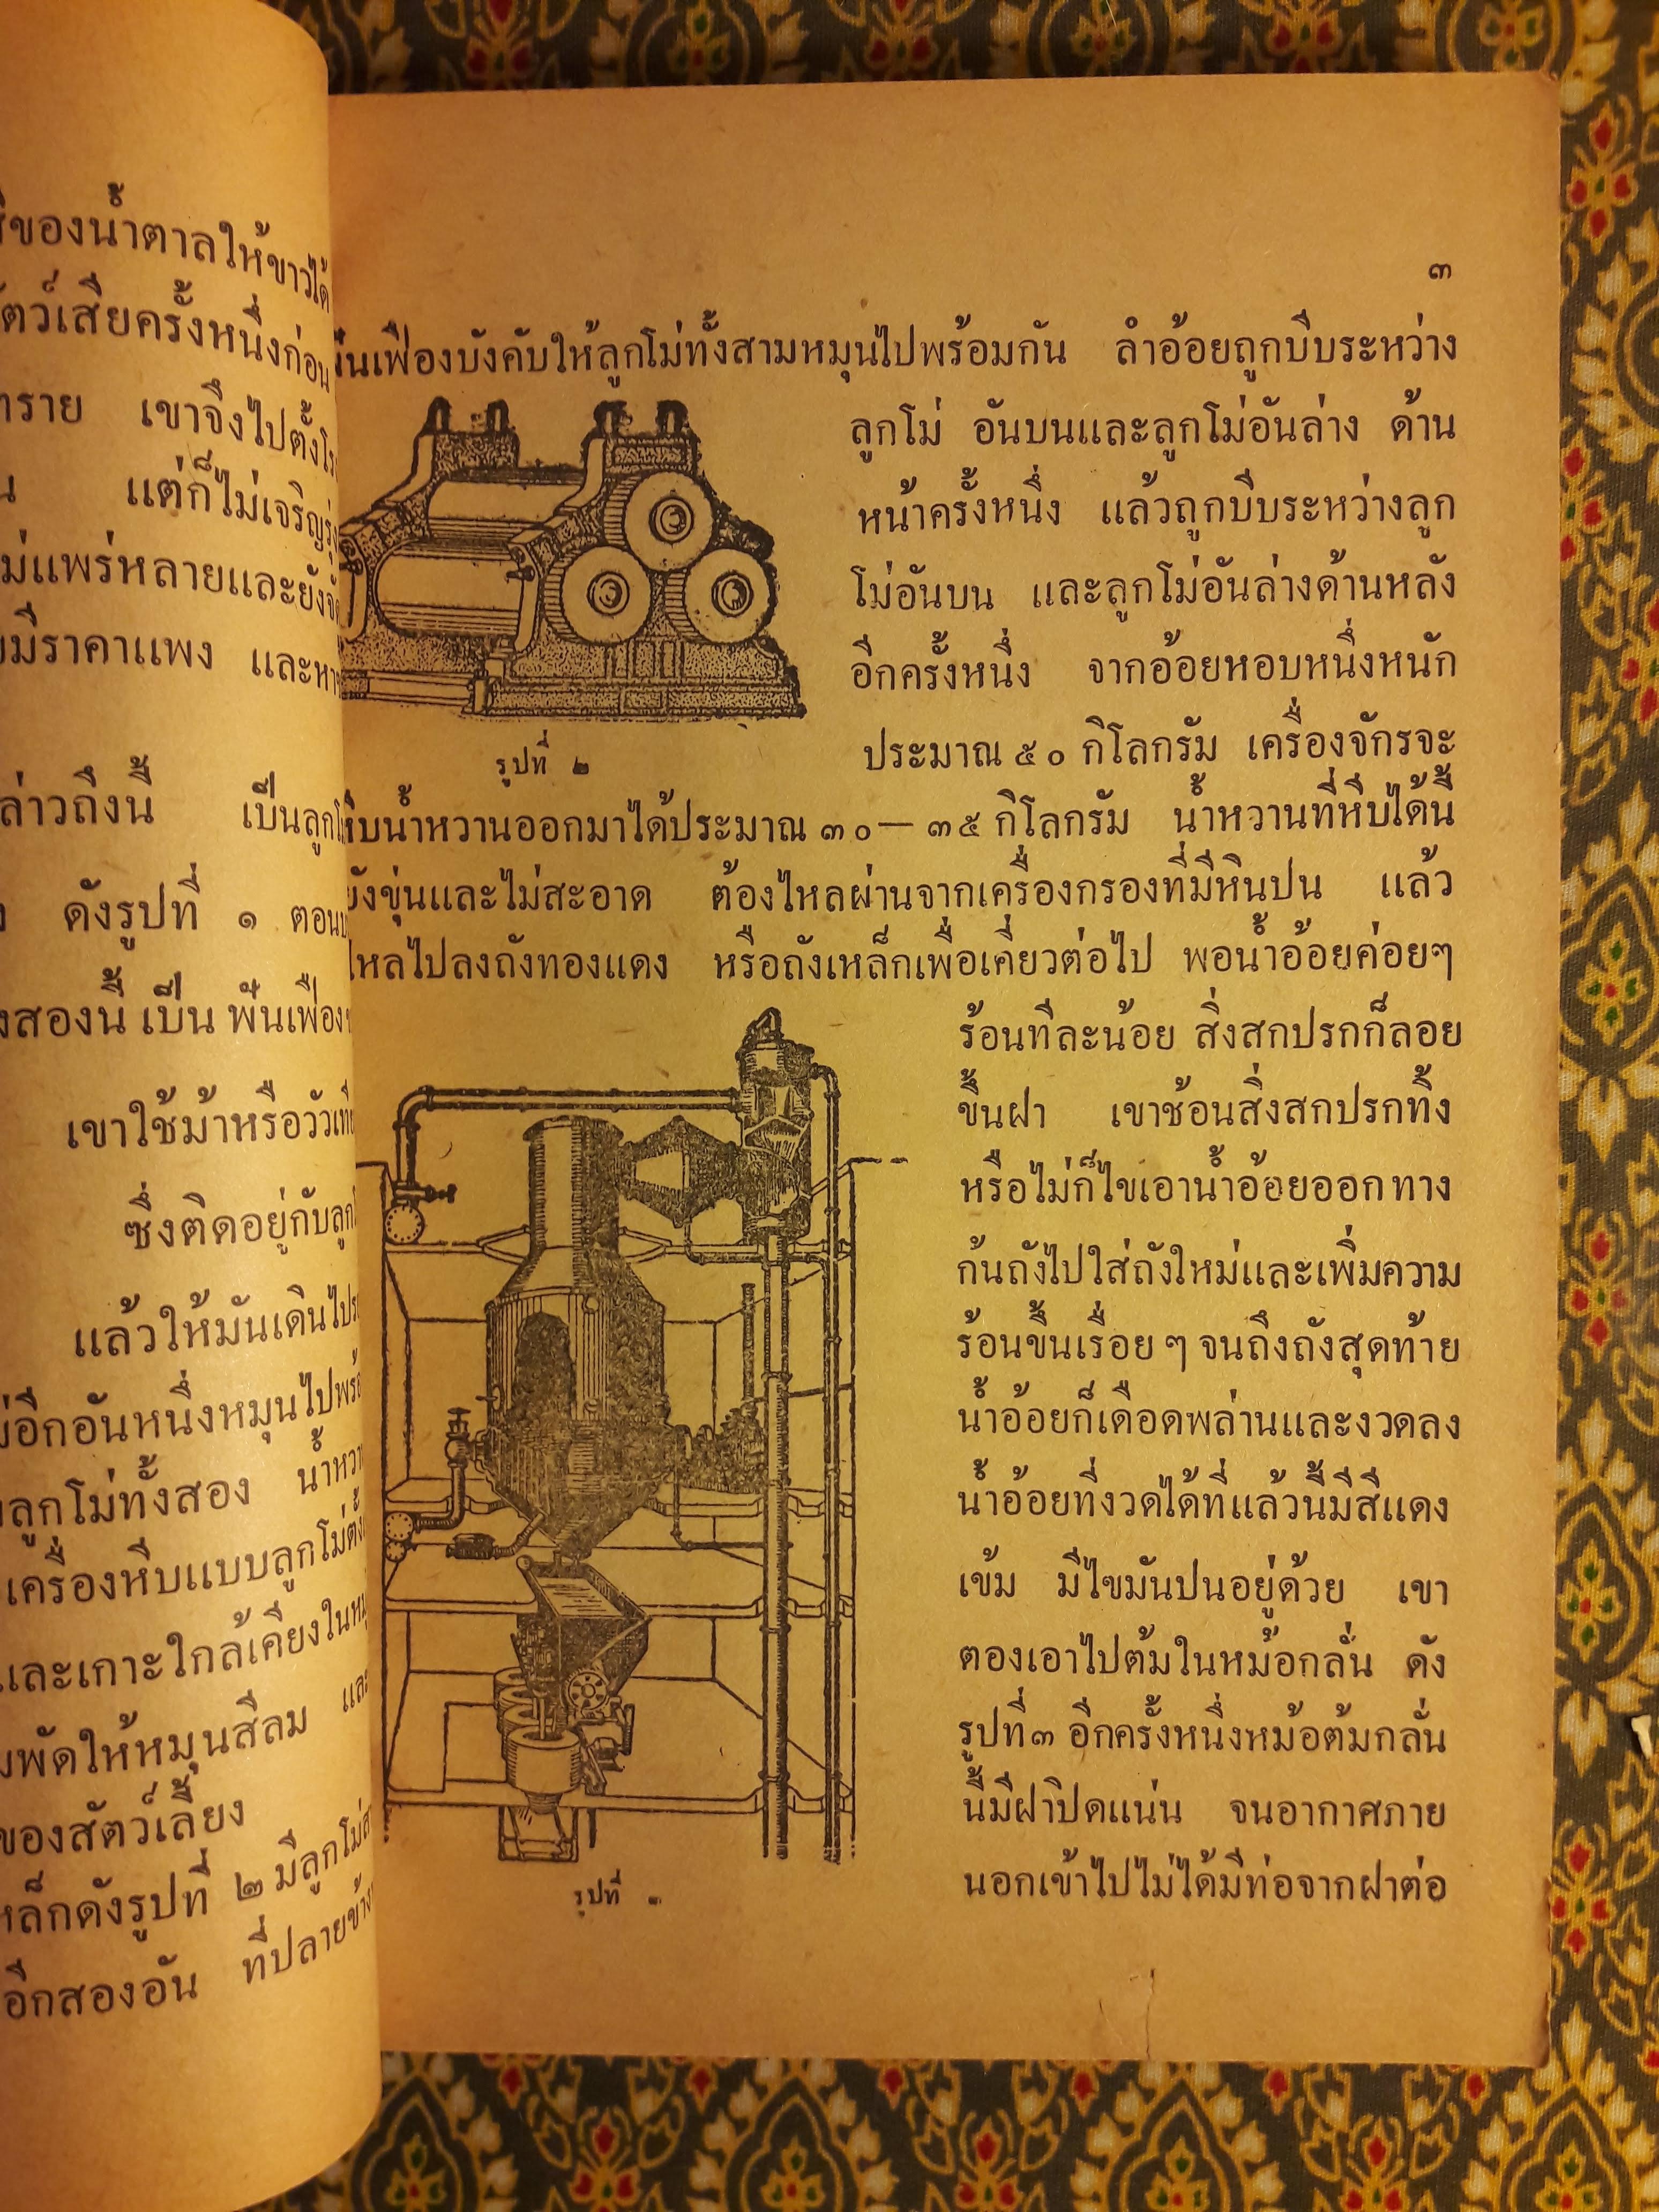 สีของน้ำตาลให้ขาวได้
สัตว์เสียครั้งหนึ่งก่อน
ทราย เขาจึงไปตั้ง
แต่ก็ไม่เจริญ
แพร่หลายและยัง
มีราคาแพง และ
ล่าวถึงนี้ เป็น
ดังรูปที่ ๑ ตอน
สองนี้ เป็น ฟันเฟือง
เขาใช้ม้าหรือวัว
ซึ่งติดอยู่กับ
แล้วให้มันเดินไป
อีกอันหนึ่งหมุนไป
ลูกโม่ทั้งสอง
เครื่องหีบแบบลูกโม่ตั้ง
และเกาะใกล้เคียงใน
พัดให้หมุนสีลม
ของสัตว์เลี้ยง
เหล็กดังรูปที่ ๒ มีลูกโม่
อีกสองอัน ที่ปลายข้าง
๓
ฟันเฟืองบังคับให้ลูกโม่ทั้งสามหมุนไปพร้อมกัน ลำอ้อยถูกบีบระหว่าง
ลูกโม่ อันบนและลูกโม่อันล่าง ด้าน
หน้าครั้งหนึ่ง แล้วถูกบีบระหว่างลูก
โม่อันบน และลูกโม่อันล่างด้านหลัง
อีกครั้งหนึ่ง จากอ้อยหอบหนึ่งหนัก
ประมาณ ๕๐ กิโลกรัม เครื่องจักรจะ
รูปที่ ๒
หีบน้ำหวานออกมาได้ประมาณ ๓๐ — ๓๕ กิโลกรัม น้ำหวานที่หีบได้นี้
ยังขุ่นและไม่สะอาด ต้องไหลผ่านจากเครื่องกรองที่มีหินปูน แล้ว
ไหลไปลงถังทองแดง หรือถังเหล็กเพื่อเคี่ยวต่อไป พอน้ำอ้อยค่อยๆ
ร้อนทีละน้อย สิ่งสกปรกก็ลอย
ขึ้นฝา เขาช้อนสิ่งสกปรกทิ้ง
หรือไม่ก็ไขเอาน้ำอ้อยออกทาง
ก้นถังไปใส่ถังใหม่และเพิ่มความ
ร้อนขึ้นเรื่อย ๆ จนถึงถังสุดท้าย
น้ำอ้อยก็เดือดพล่านและงวดลง
น้ำอ้อยที่งวดได้ที่แล้วนี้มีสีแดง
เข้ม มีไขมันปนอยู่ด้วย เขา
ตองเอาไปต้มในหม้อกลั่น ดัง
รูปที่๓ อีกครั้งหนึ่งหม้อต้มกลั่น
นี้มีฝาปิดแน่น จนอากาศภาย
นอกเข้าไปไม่ได้มีท่อจากฝาต่อ
รูปที่ ๓